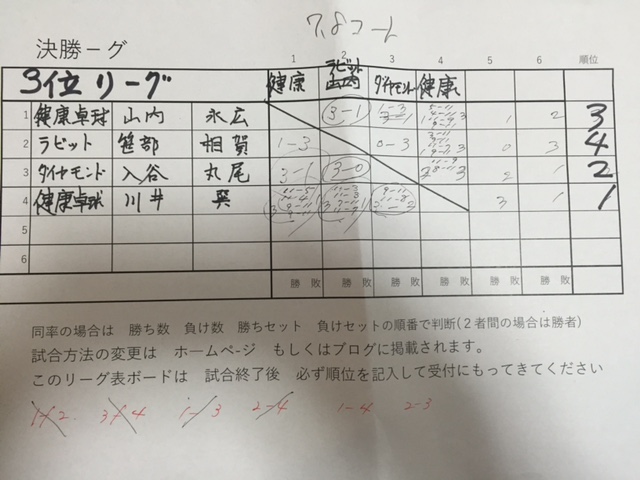 7.8コート
決勝－グ
1 2 3 4 5 6 順位
3位リーグ 健康 ラビット ダイヤモンド 健康
1 健康卓球 山内 永広 3-1 1-3 1 2 3
2 ラビット 笹部 相賀 1-3 0-3 0 3 4
3 ダイヤモンド 入谷 丸尾 3-1 3-0 2 1 2
4 健康卓球 川井 3 1 1
5
6
勝 敗 勝 敗 勝 敗 勝 敗 勝 敗 勝 敗
同率の場合は 勝ち数 負け数 勝ちセット 負けセットの順番で判断(２者間の場合は勝者)
試合方法の変更は ホームページ もしくはブログに掲載されます。
このリーグ表ボードは 試合終了後 必ず順位を記入して受付にもってきてください
1-2 3-4 1-3 2-4 1-4 2-3